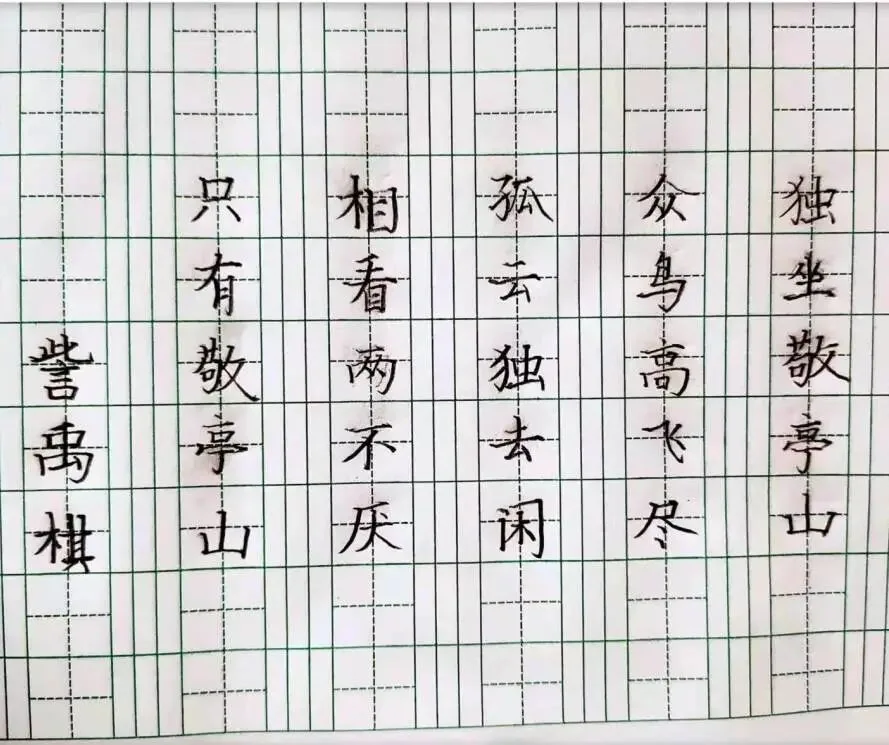 独坐敬亭山
众鸟高飞尽
孤云独去闲
相看两不厌
只有敬亭山
訾禹棋